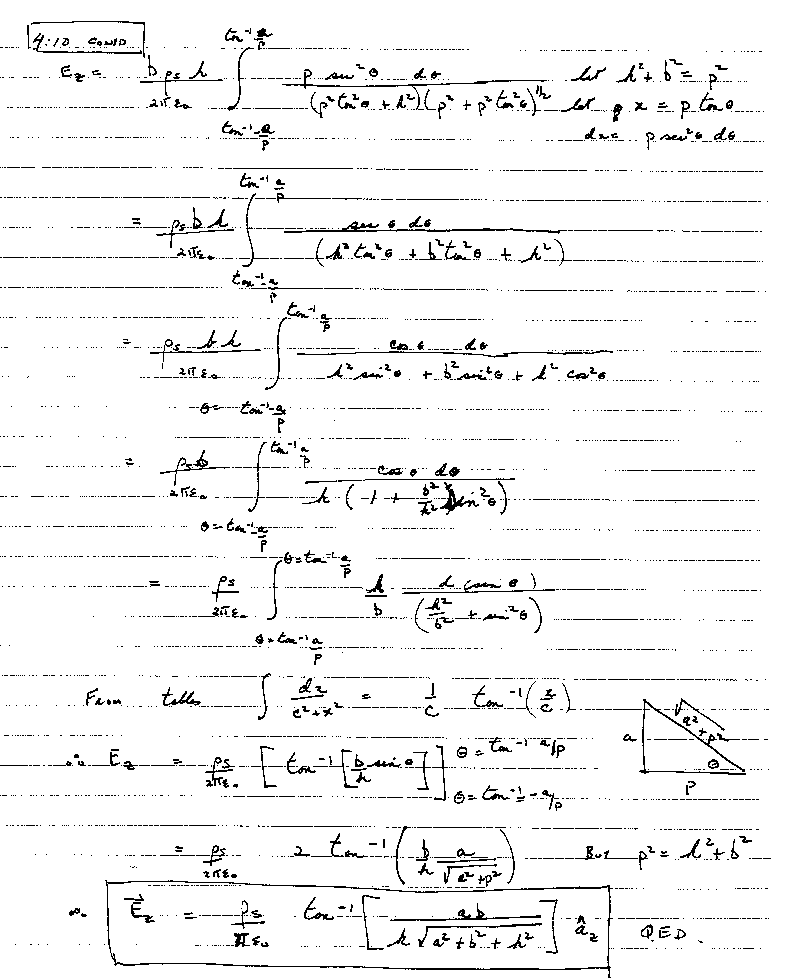 4.10 CONT'D
E_z = b ρ_s h / 2πε₀ ∫_{tan⁻¹ -a/p}^{tan⁻¹ a/p} p sec²θ dθ / (p² tan²θ + h²)(p² + p² tan²θ)^{1/2} let h² + b² = p²
let x = p tan θ
dx = p sec²θ dθ
= ρ_s b h / 2πε₀ ∫_{tan⁻¹ -a/p}^{tan⁻¹ a/p} sec θ dθ / (h² tan²θ + b² tan²θ + h²)
= ρ_s b h / 2πε₀ ∫_{θ = tan⁻¹ -a/p}^{tan⁻¹ a/p} cos θ dθ / h² sin²θ + b² sin²θ + h² cos²θ
= ρ_s b / 2πε₀ ∫_{θ = tan⁻¹ -a/p}^{tan⁻¹ a/p} cos θ dθ / h (1 + b²/h² sin²θ)
= ρ_s / 2πε₀ ∫_{θ = tan⁻¹ a/p}^{θ = tan⁻¹ a/p} h/b d(sin θ) / (h²/b² + sin²θ)
From tables ∫ dx / c² + x² = 1/c tan⁻¹(x/c)
∴ E_z = ρ_s / 2πε₀ [tan⁻¹[b/h sin θ]]_{θ = tan⁻¹ -a/p}^{θ = tan⁻¹ a/p}
a √a² + p² θ
p
= ρ_s / 2πε₀ 2 tan⁻¹(b/h a/√a² + p²) But p² = h² + b²
∴ E⃗_z = ρ_s / πε₀ tan⁻¹[ab / h√a² + b² + h²] â_z QED.